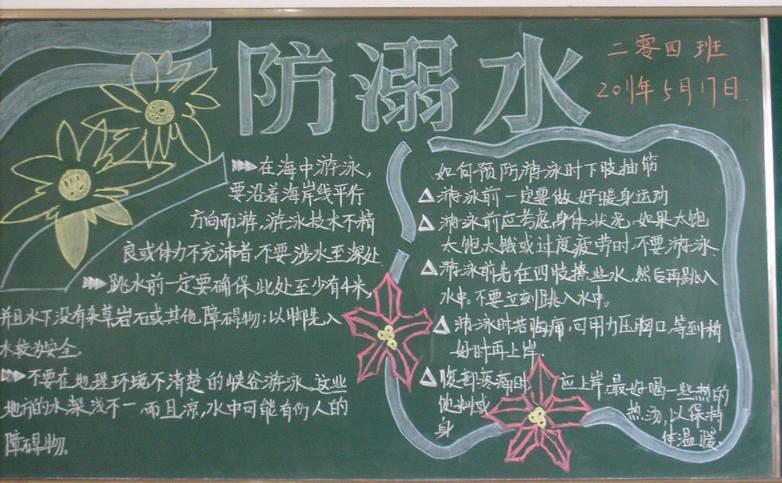 防溺水
二零四班
2011年5月17日
在海中游泳,
要沿着海岸线平行
方向而游,游泳技术不精
良或体力不充沛者,不要涉水至深处
跳水前一定要确保此处至少有4米,
并且水下没有杂草岩石或其他障碍物;以脚先入
水较为安全。
不要在地理环境不清楚的峡谷游泳,这些
地方的水深浅不一,而且凉,水中可能有伤人的
障碍物。
如何预防游泳时下肢抽筋
游泳前一定要做好暖身运动
游泳前应考虑身体状况,如果太饱
太饿或过度疲劳时,不要游泳
游泳前先在四肢擦些水,然后再跳入
水中。不要立刻跳入水中。
游泳时若胸痛,可用力压胸口,等到稍
好时再上岸.
腹部疼痛时 应上岸,最好喝一些热的
热汤,以保持
身体温暖.